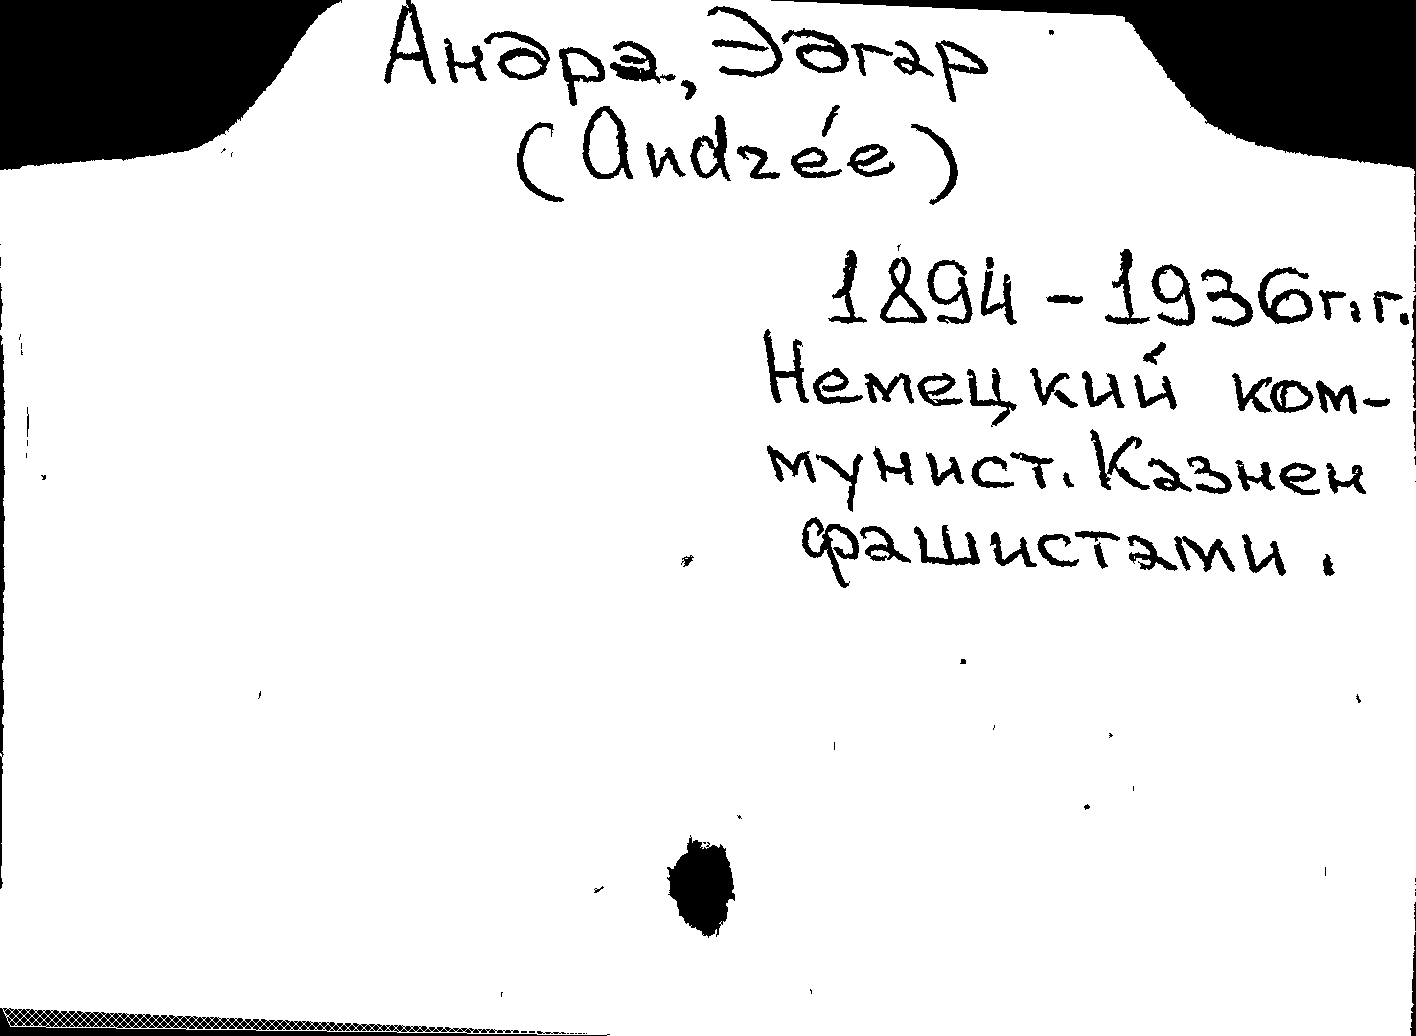 Андрэ, Эдгар
(Andrée)
1894 - 1936 г.г.
Немецкий ком-
мунист. Казнен
фашистами.